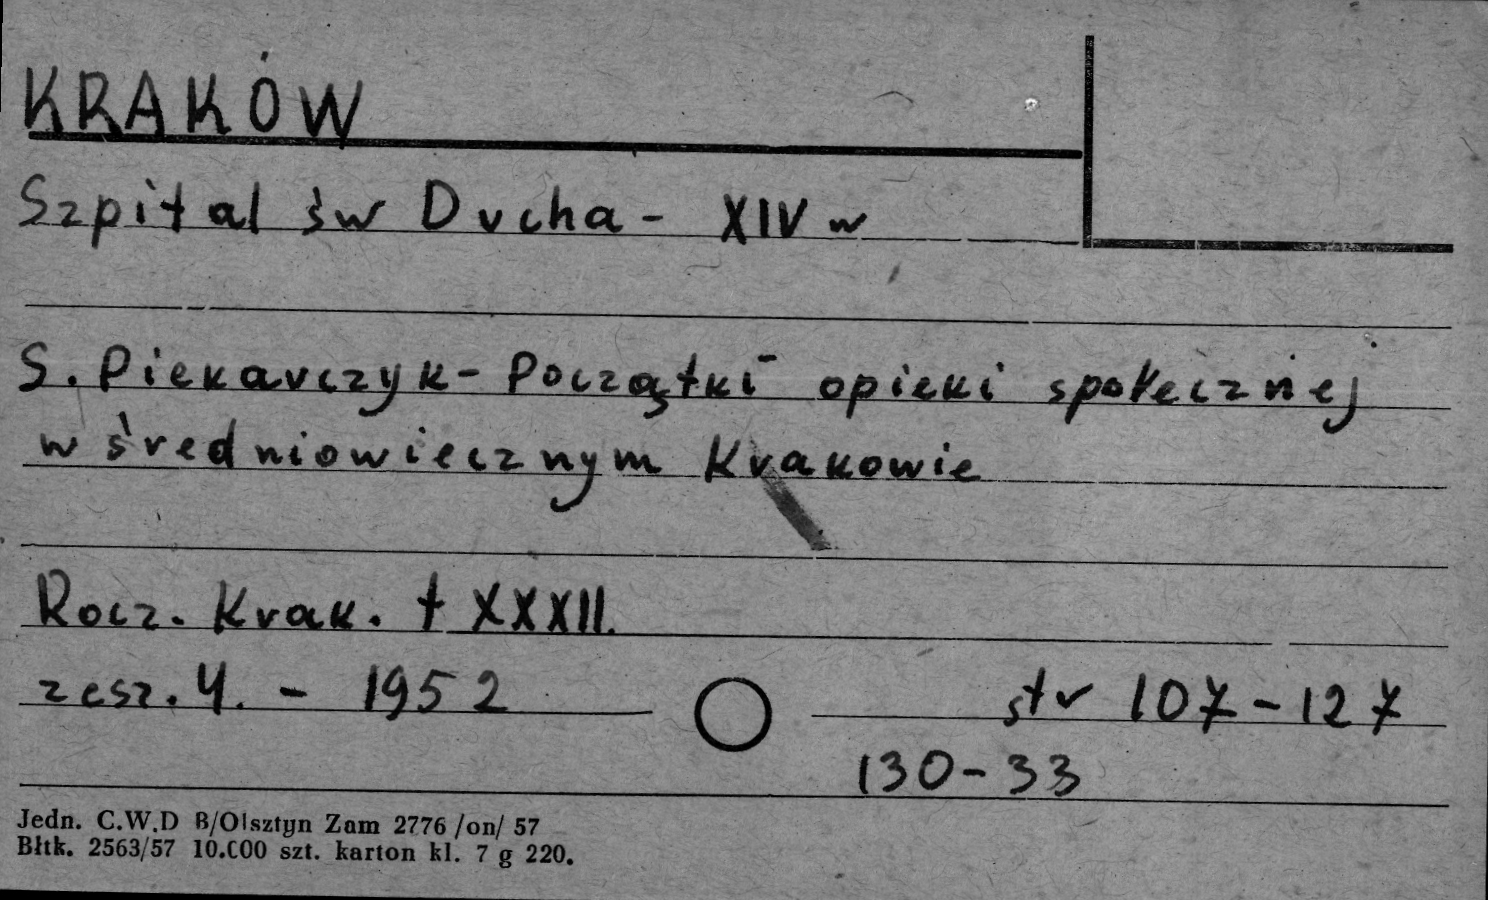 KRAKÓW
Szpital św Ducha - XIV w
S. Piekarczyk - Początki opieki społecznej
w średniowiecznym Krakowie
Rocz. Krak. t XXXII.
zesz. 4. - 1952
str 107 - 127
130 - 33
Jedn. C.W.D B/Olsztyn Zam 2776 /on/ 57
Błtk. 2563/57 10.000 szt. karton kl. 7 g 220.